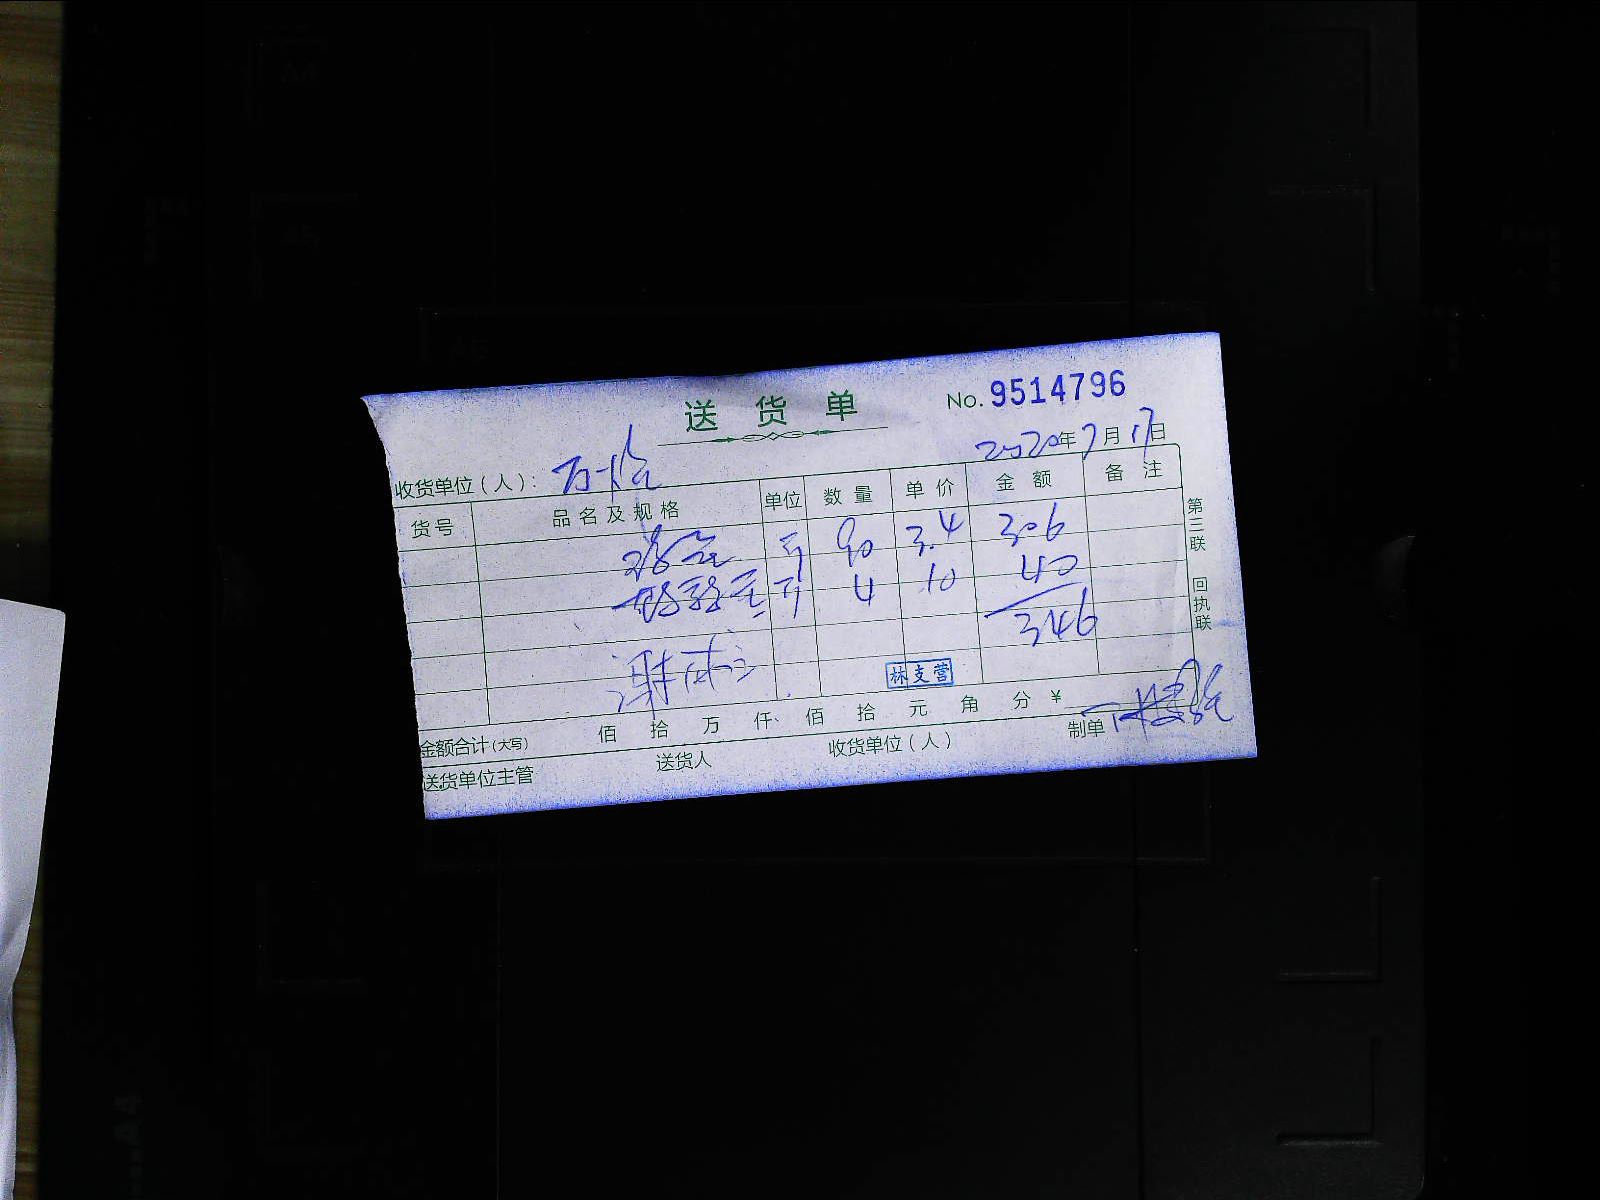 送货单 No. 9514796
2020年7月17日
收货单位(人):
货号 品名及规格 单位 数量 单价 金额 备注
90 3.4 306
4 10 40
346
林支营
金额合计(大写) 佰拾万仟佰拾元角分¥
送货单位主管 送货人 收货单位(人) 制单
第三联 回执联